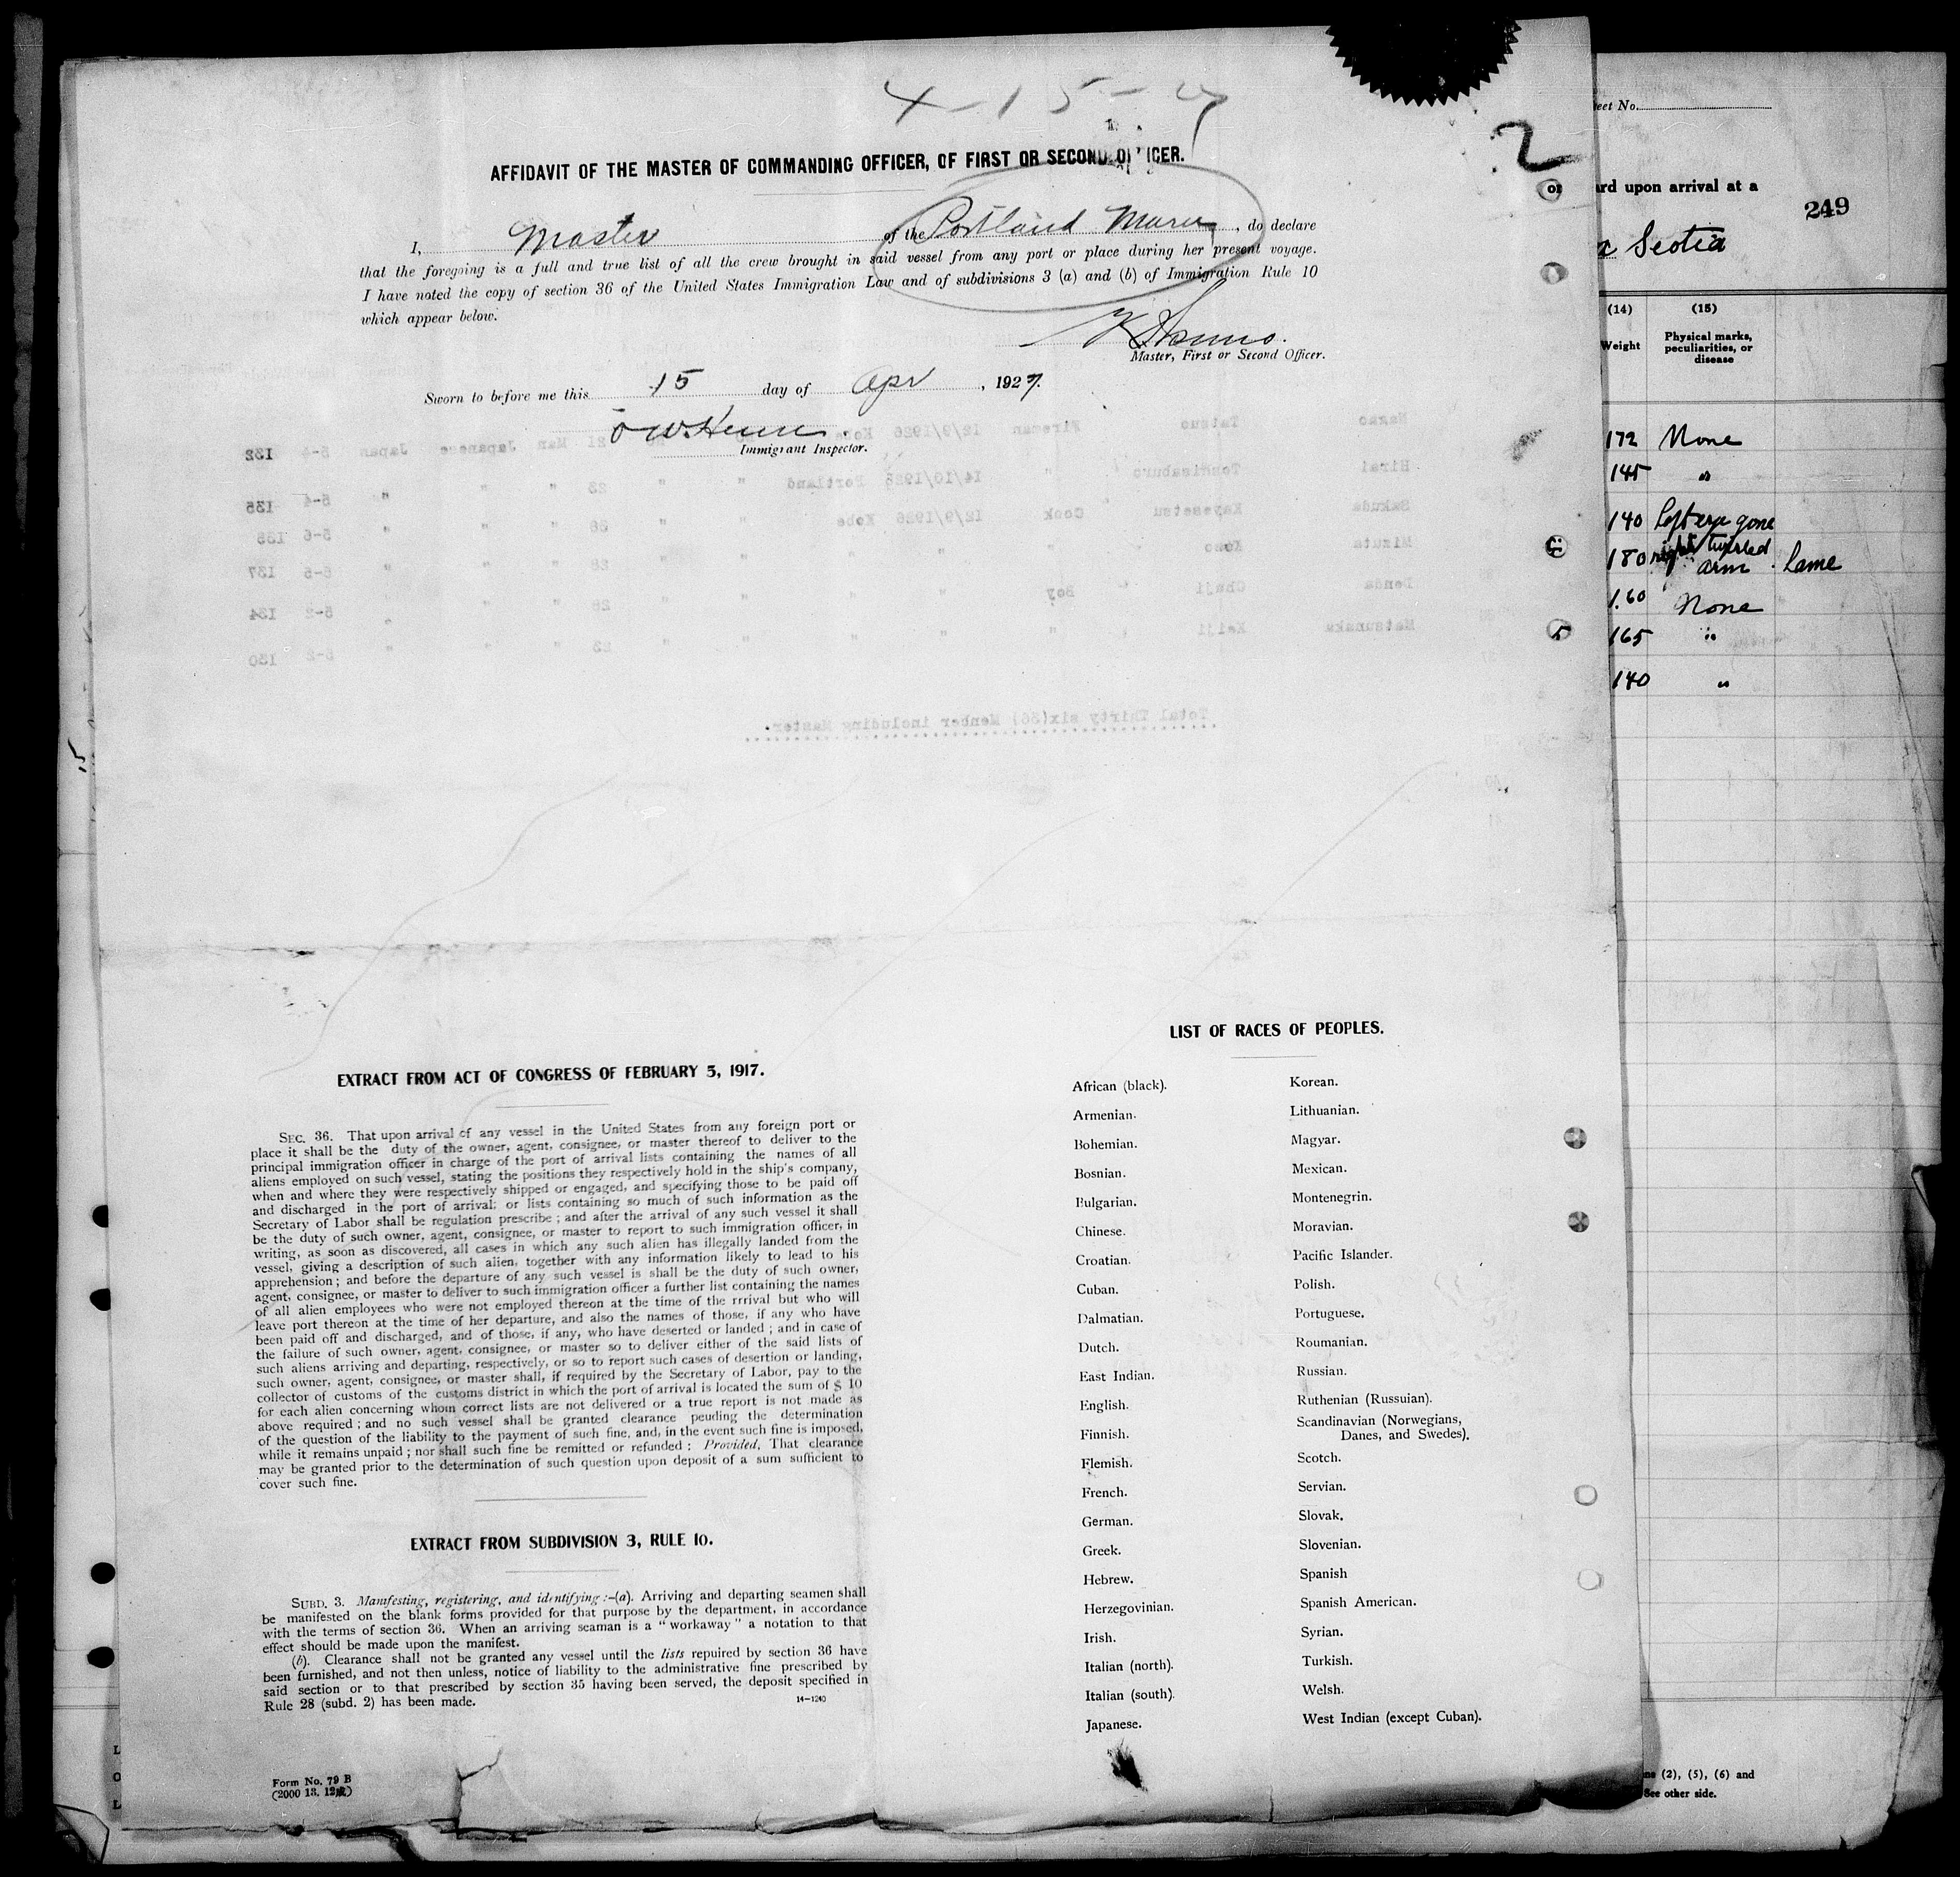 4-15-27
2
AFFIDAVIT OF THE MASTER OF COMMANDING OFFICER, OF FIRST OR SECOND OFFICER.
I, Master of the Portland Maru, do declare
that the foregoing is a full and true list of all the crew brought in said vessel from any port or place during her present voyage.
I have noted the copy of section 36 of the United States Immigration Law and of subdivisions 3 (a) and (b) of Immigration Rule 10
which appear below.
Master, First or Second Officer.
Sworn to before me this 15 day of Apr, 1927.
Immigrant Inspector.
Nagao Tatsuo Fireman 12/9/1926 Kobe 21 Man Japanese Japan 5-4 132
Hirai 14/10/1926 Portland " 23 " " " 5-4 135
Sakuda Cook 12/9/1926 Kobe " " " " " 5-6
Mizuta " " " " " 28 " " " 5-5 137
Boy " " " " 26 " " " 5-2 134
Matsunaka Keiji " " " " " 23 " " " 5-2 130
Total Thirty six(36) Member including Master.
EXTRACT FROM ACT OF CONGRESS OF FEBRUARY 5, 1917.
SEC. 36. That upon arrival of any vessel in the United States from any foreign port or
place it shall be the duty of the owner, agent, consignee, or master thereof to deliver to the
principal immigration officer in charge of the port of arrival lists containing the names of all
aliens employed on such vessel, stating the positions they respectively hold in the ship's company,
when and where they were respectively shipped or engaged, and specifying those to be paid off
and discharged in the port of arrival; or lists containing so much of such information as the
Secretary of Labor shall be regulation prescribe; and after the arrival of any such vessel it shall
be the duty of such owner, agent, consignee, or master to report to such immigration officer, in
writing, as soon as discovered, all cases in which any such alien has illegally landed from the
vessel, giving a description of such alien, together with any information likely to lead to his
apprehension; and before the departure of any such vessel is shall be the duty of such owner,
agent, consignee, or master to deliver to such immigration officer a further list containing the names
of all alien employees who were not employed thereon at the time of the rrrival but who will
leave port thereon at the time of her departure, and also the names of those, if any who have
been paid off and discharged, and of those, if any, who have deserted or landed; and in case of
the failure of such owner, agent, consignee, or master so to deliver either of the said lists of
such aliens arriving and departing, respectively, or so to report such cases of desertion or landing,
such owner, agent, consignee, or master shall, if required by the Secretary of Labor, pay to the
collector of customs of the customs district in which the port of arrival is located the sum of $ 10
for each alien concerning whom correct lists are not delivered or a true report is not made as
above required; and no such vessel shall be granted clearance peuding the determination
of the question of the liability to the payment of such fine, and, in the event such fine is imposed,
while it remains unpaid; nor shall such fine be remitted or refunded: Provided, That clearance
may be granted prior to the determination of such question upon deposit of a sum sufficient to
cover such fine.
EXTRACT FROM SUBDIVISION 3, RULE 10.
SUBD. 3. Manifesting, registering, and identifying:-(a). Arriving and departing seamen shall
be manifested on the blank forms provided for that purpose by the department, in accordance
with the terms of section 36. When an arriving seaman is a "workaway" a notation to that
effect should be made upon the manifest.
(b). Clearance shall not be granted any vessel until the lists repuired by section 36 have
been furnished, and not then unless, notice of liability to the administrative fine prescribed by
said section or to that prescribed by section 35 having been served, the deposit specified in
Rule 28 (subd. 2) has been made. 14-1240
Form No. 79 B
LIST OF RACES OF PEOPLES.
African (black).
Armenian.
Bohemian.
Bosnian.
Bulgarian.
Chinese.
Croatian.
Cuban.
Dalmatian.
Dutch.
East Indian.
English.
Finnish.
Flemish.
French.
German.
Greek.
Hebrew.
Herzegovinian.
Irish.
Italian (north).
Italian (south).
Japanese.
Korean.
Lithuanian.
Magyar.
Mexican.
Montenegrin.
Moravian.
Pacific Islander.
Polish.
Portuguese.
Roumanian.
Russian.
Ruthenian (Russuian).
Scandinavian (Norwegians,
Danes, and Swedes).
Scotch.
Servian.
Slovak.
Slovenian.
Spanish
Spanish American.
Syrian.
Turkish.
Welsh.
West Indian (except Cuban).
eet No.
ard upon arrival at a
249
a Scotia
(14) (15)
Weight Physical marks,
peculiarities, or
disease
172 None
145 "
140 Left eye gone
180 right twisted
arm. Lame
160 None
165 "
140 "
(2), (5), (6) and
See other side.